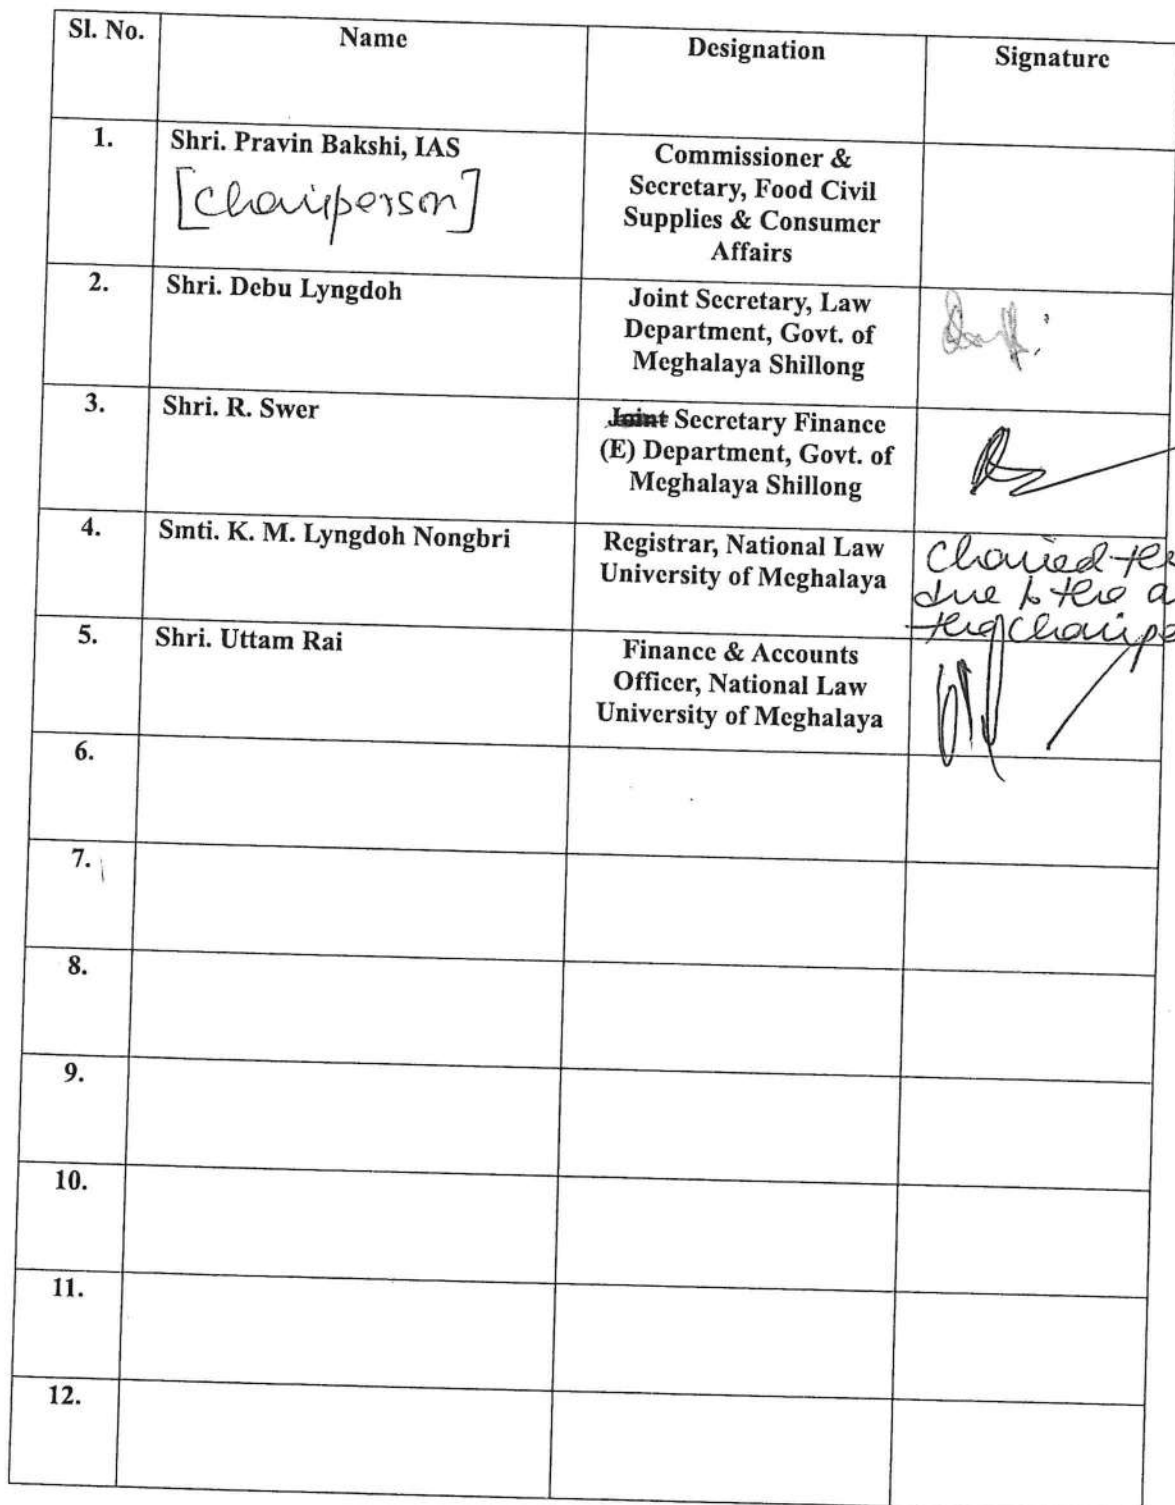 Sl. No. Name Designation Signature
1. Shri. Pravin Bakshi, IAS
[Chairperson]
Commissioner &
Secretary, Food Civil
Supplies & Consumer
Affairs
2. Shri. Debu Lyngdoh
Joint Secretary, Law
Department, Govt. of
Meghalaya Shillong
3. Shri. R. Swer
Joint Secretary Finance
(E) Department, Govt. of
Meghalaya Shillong
4. Smti. K. M. Lyngdoh Nongbri
Registrar, National Law
University of Meghalaya
Chaired the
due to the a
the Chairpe
5. Shri. Uttam Rai
Finance & Accounts
Officer, National Law
University of Meghalaya
6.
7.
8.
9.
10.
11.
12.